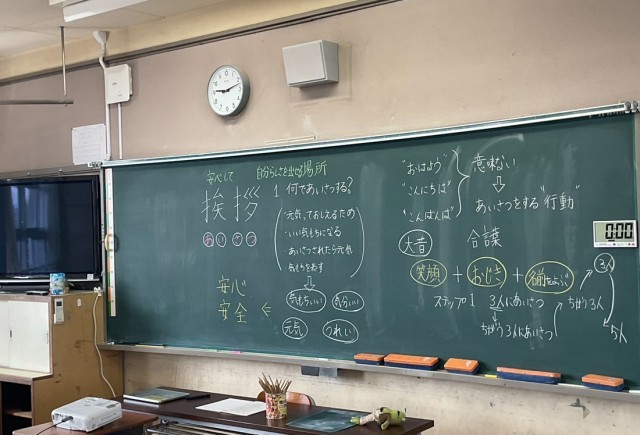 安心して 自分らしさを出せる場所
挨拶
あいさつ
1 何であいさつする?
・元気っておしえるため
・いい気もちになる
・あいさつされたら元気
気もちを表す
気もちいい
気分いい
元気
うれしい
安心
安全
"おはよう"
"こんにちは"
"こんばんは"
意味ない
あいさつをする"行動"
大昔
合言葉
笑顔 + おじぎ +
ステップ1 3人にあいさつ
ちがう3人にあいさつ
ちがう3人
3人
5人
0:00